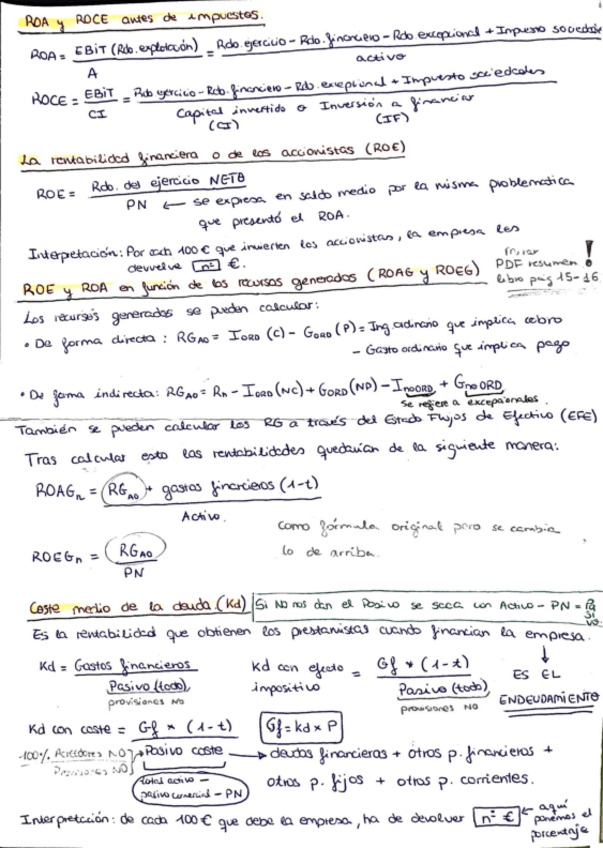 ROA y ROCE antes de impuestos.
ROA = EBIT (Rdo. explotación) / A = Rdo. ejercicio - Rdo. financiero - Rdo excepcional + Impuesto sociedades / activo
ROCE = EBIT / CI = Rdo ejercicio - Rdo. financiero - Rdo. excepcional + Impuesto sociedades / Capital invertido o Inversión a financiar
(CI) (IF)
La rentabilidad financiera o de los accionistas (ROE)
ROE = Rdo. del ejercicio NETO / PN ← se expresa en saldo medio por la misma problematica
que presentó el ROA.
Interpretación: Por cada 100 € que invierten los accionistas, la empresa les
devuelve nº €.
PDF resumen !
libro pág 15-16
ROE y ROA en función de los recursos generados (ROAG y ROEG)
Los recursos generados se pueden calcular:
• De forma directa: RG AO = I ORD (C) - G ORD (P) = Ing ordinario que implica cobro
- Gasto ordinario que implica pago
• De forma indirecta: RG AO = Rn - I ORD (NC) + G ORD (NP) - I noORD + G noORD
se refiere a excepcionales.
También se pueden calcular los RG a través del Estado Flujos de Efectivo (EFE)
Tras calcular esto las rentabilidades quedarían de la siguiente manera:
ROAGn = RG AO + gastos financieros (1-t) / Activo.
Como fórmula original pero se cambia
lo de arriba.
ROEGn = RG AO / PN
Coste medio de la deuda (Kd) Si NO nos dan el Pasivo se saca con Activo - PN = Pasivo
Es la rentabilidad que obtienen los prestamistas cuando financian la empresa.
↓
ES EL
ENDEUDAMIENTO
Kd = Gastos financieros / Pasivo (todo)
provisiones NO
Kd con efecto impositivo = Gf * (1-t) / Pasivo (todo)
provisiones NO
Kd con coste = Gf * (1-t) / Pasivo coste
Gf = kd × P
-100% Acreedores NO
Provisiones NO
→ deudas financieras + otros p. financieros +
otros p. fijos + otros p. corrientes.
total activo -
pasivo comercial - PN
Interpretción: de cada 100 € que debe la empresa, ha de devolver nº € ← aquí ponemos el porcentaje